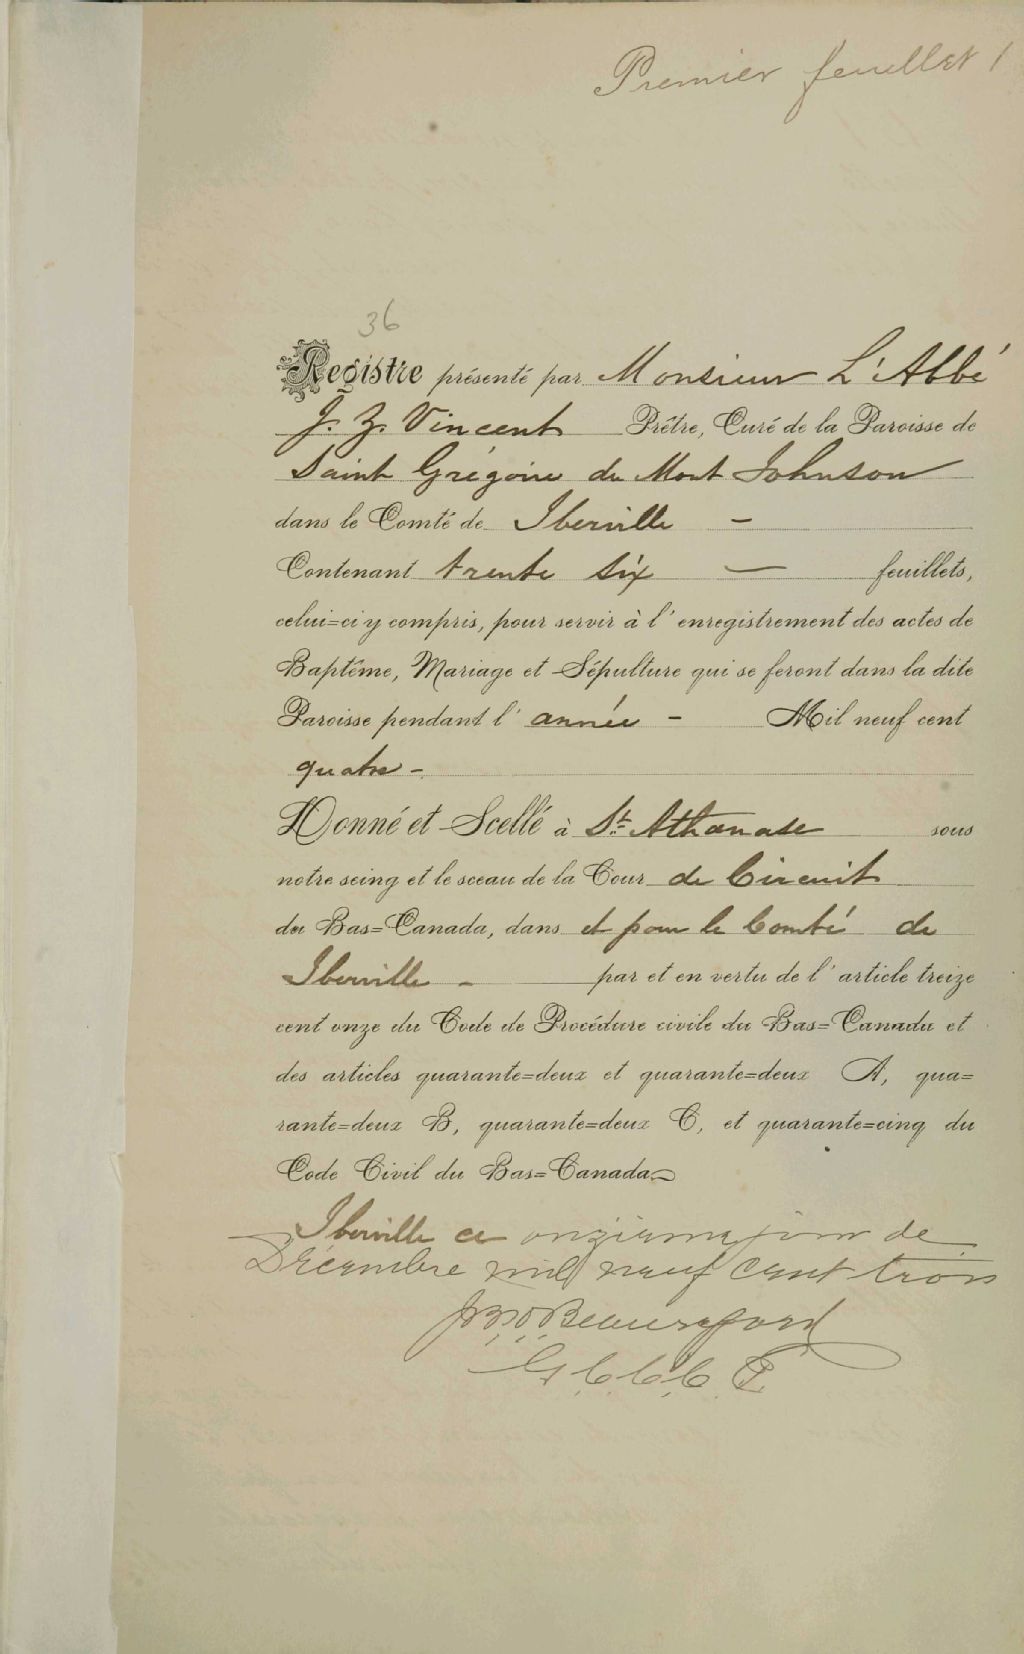 Premier feuillet 1
36
Registre présenté par Monsieur L'Abbé
J. Z. Vincent Prêtre, Curé de la Paroisse de
Saint Grégoire du Mont Johnson
dans le Comté de Iberville -
Contenant trente six - feuillets,
celui=ci y compris, pour servir à l'enregistrement des actes de
Baptême, Mariage et Sépulture qui se feront dans la dite
Paroisse pendant l'année - Mil neuf cent
quatre -
Donné et Scellé à St. Athanase sous
notre seing et le sceau de la Cour de Circuit
du Bas=Canada, dans et pour le Comté de
Iberville - par et en vertu de l'article treize
cent onze du Code de Procédure civile du Bas=Canada et
des articles quarante=deux et quarante=deux A, qua=
rante=deux B, quarante=deux C, et quarante=cinq du
Code Civil du Bas=Canada
Iberville ce onzieme jour de
Décembre mil neuf cent trois
Beauregard
G. C. C. C. I.